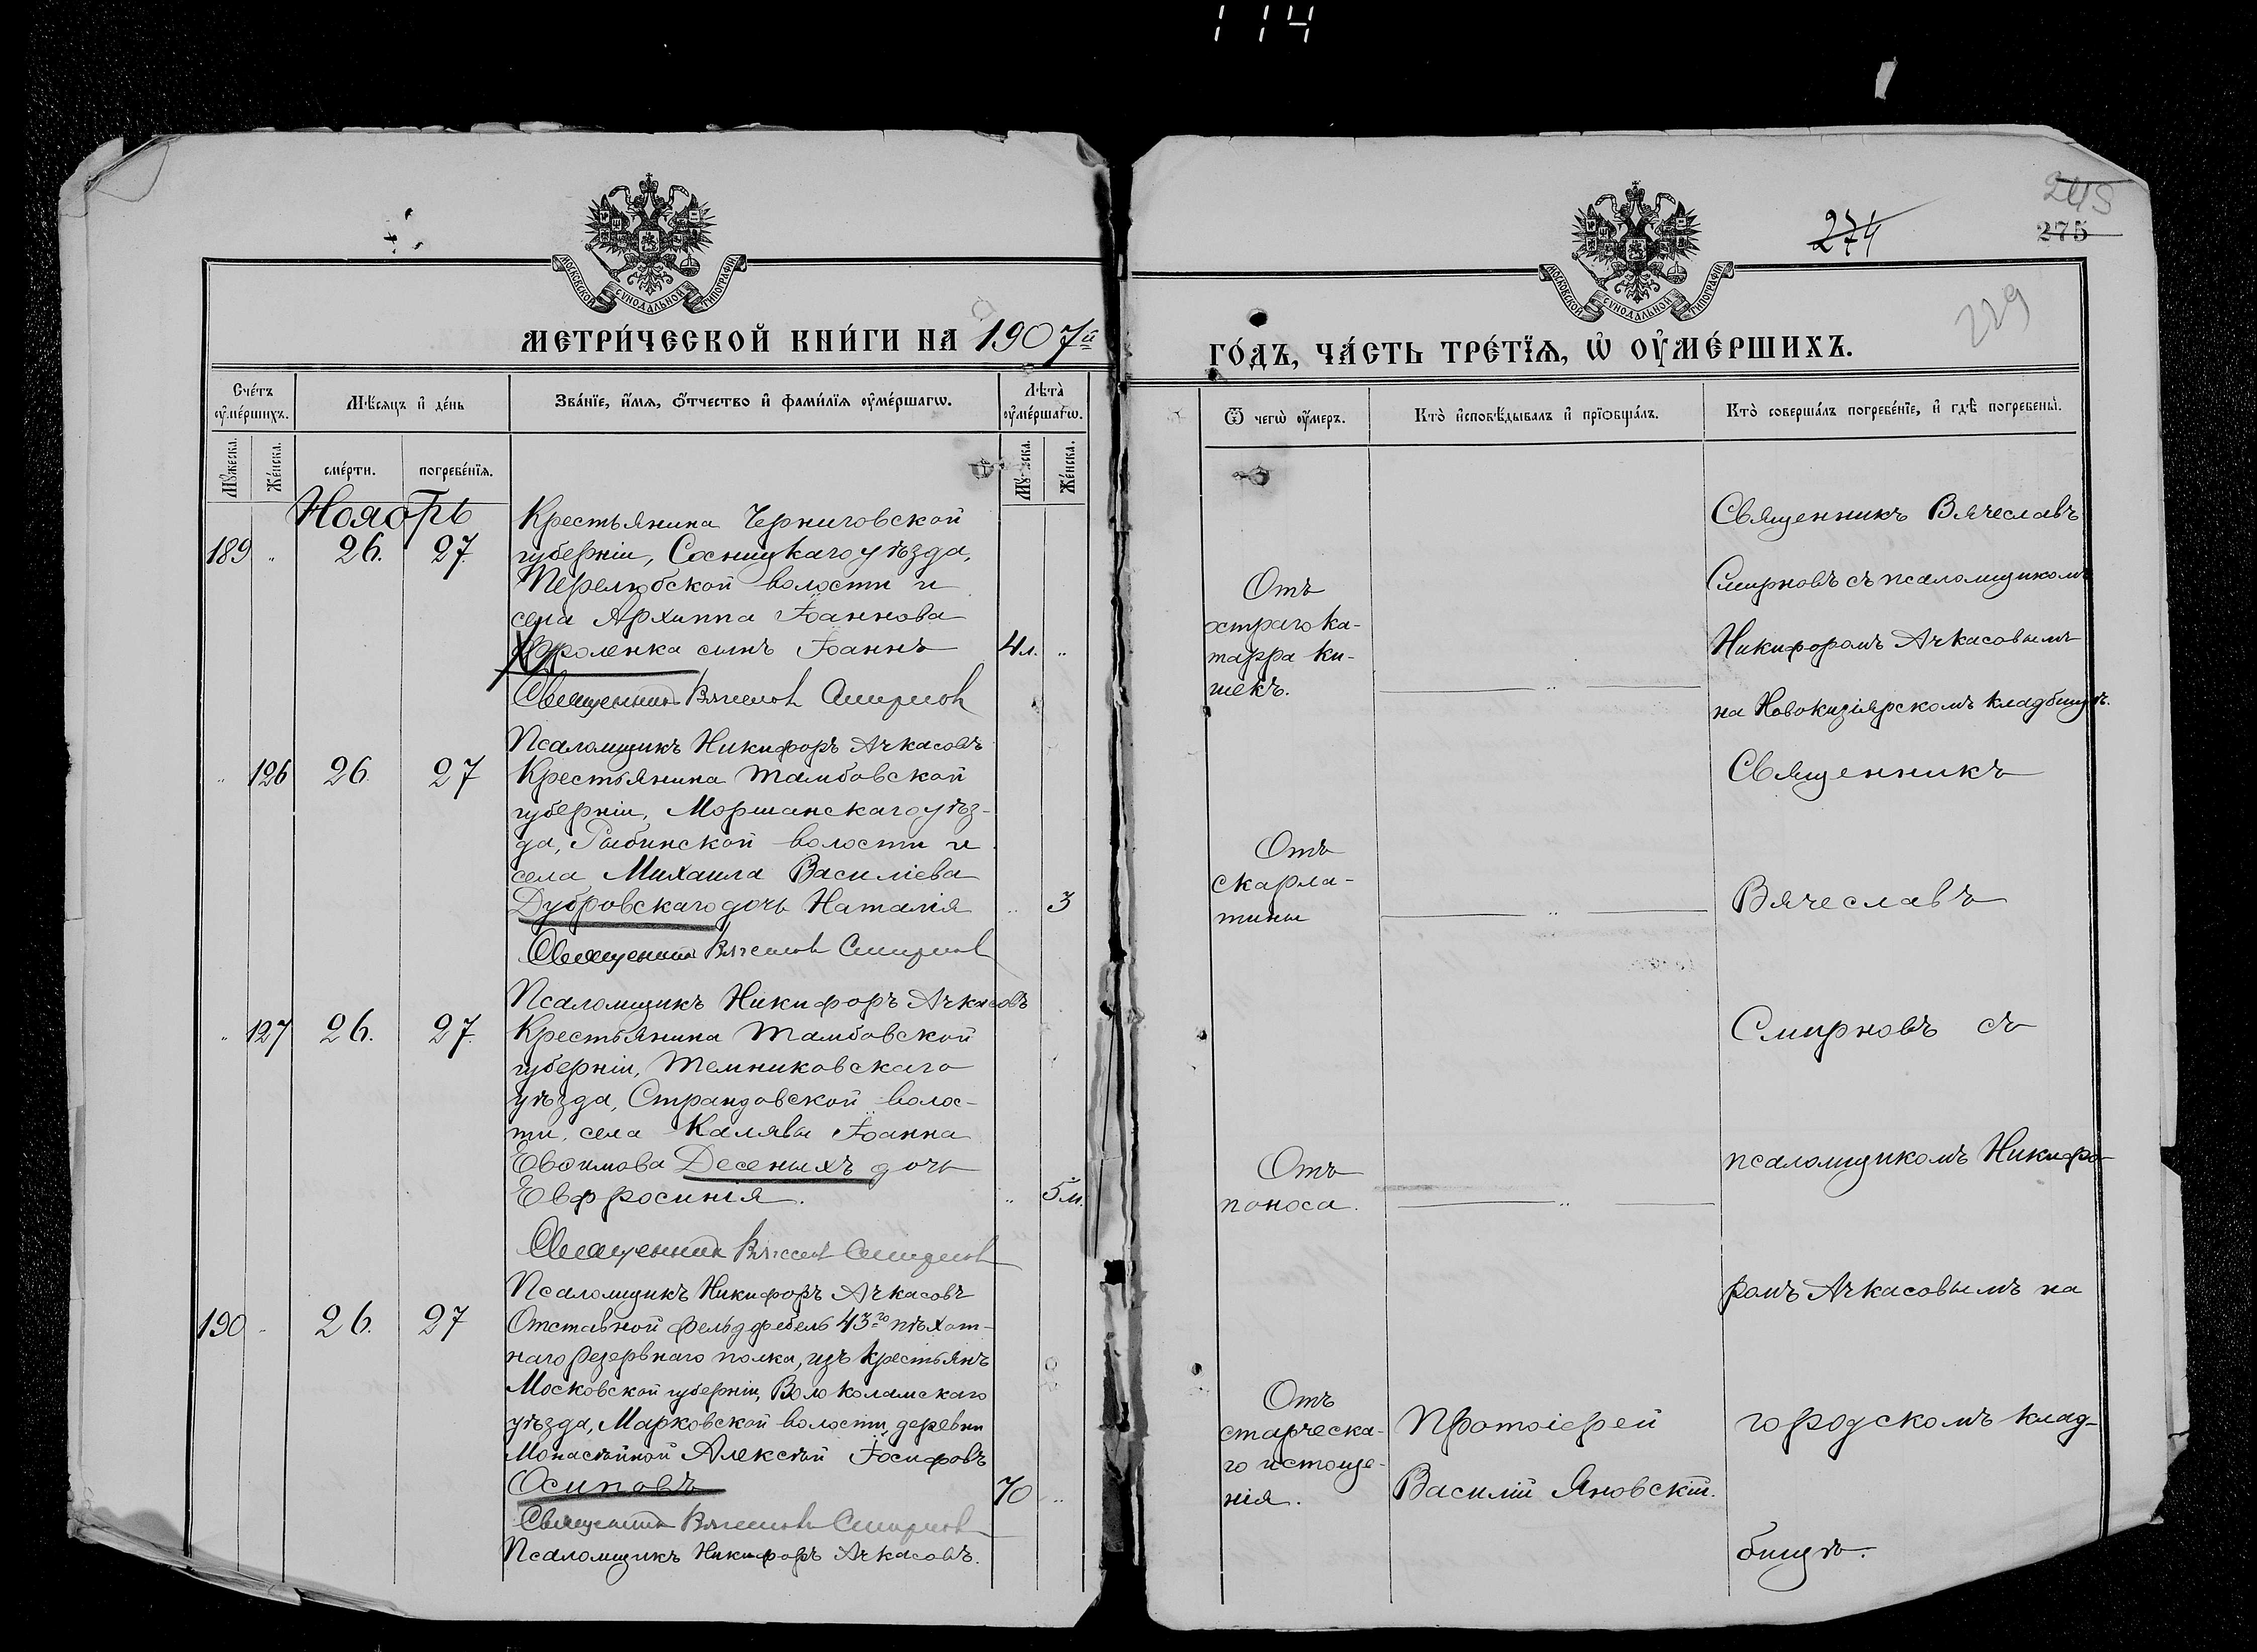 114
274
245
275
229
МОСКОВСКОЙ СУНОДАЛЬНОЙ ТИПОГРАФІИ
МОСКОВСКОЙ СУНОДАЛЬНОЙ ТИПОГРАФІИ
МЕТРИ́ЧЕСКОЙ КНИ́ГИ НА 1907й
ГО́ДЪ, ЧА́СТЬ ТРЕ́ТЇѦ, Ѡ҆ ОУ҆МЕ́РШИХЪ.
Сче́тъ оу҆ме́ршихъ.
Мѣ́сѧцъ и҆ де́нь
Зва́нїе, и҆́мѧ, ѻ҆́тчество и҆ фами́лїѧ оу҆ме́ршагѡ.
Лѣта̀ оу҆ме́ршагѡ.
Ѿ чегѡ̀ оу҆́меръ.
Кто̀ и҆сповѣ́дывалъ и҆ прїѡбща́лъ.
Кто̀ соверша́лъ погребе́нїе, и҆ гдѣ̀ погребены̀.
Мꙋ́жеска.
Же́нска.
сме́рти.
погребе́нїѧ.
Мꙋ́жеска.
Же́нска.
Ноябрь
189 " 26. 27.
Крестьянина Черниговской
губерніи, Сосницкаго уѣзда,
Перелюбской волости и
села Архиппа Іоаннова
Фроленка сынъ Іоаннъ 4 л. "
Священникъ Вячеслав Смирнов
Псаломщикъ Никифоръ Ачкасовъ
Отъ
остраго ка-
тарра ки-
шекъ.
Священникъ Вячеславъ
Смирновъ съ псаломщикомъ
Никифоромъ Ачкасовымъ
на Новокизіярскомъ кладбищѣ.
" 126 26. 27
Крестьянина Тамбовской
губерніи, Моршанскаго уѣз-
да, Рыбинской волости и
села Михаила Василіева
Дубровскаго дочь Наталія " 3
Священникъ Вячеслав Смирнов
Псаломщикъ Никифоръ Ачкасовъ
Отъ
скарла-
тины
Священникъ
Вячеславъ
" 127 26. 27.
Крестьянина Тамбовской
губерніи, Темниковскаго
уѣзда, Страндовской волос-
ти, села Калявы Іоанна
Евѳимова Десеныхъ дочь
Евфросинія. " 5 м.
Священник Вячеслав Смирнов
Псаломщикъ Никифоръ Ачкасовъ
Отъ
поноса.
Смирновъ съ
псаломщикомъ Никифо-
190 " 26. 27
Отставной фельдфебель 43го пѣхот-
наго резервнаго полка, изъ крестьянъ
Московской губерніи, Волоколамскаго
уѣзда, Марковской волости, деревни
Алексѣй Іосифовъ
Осиповъ 70 "
Священникъ Вячеслав Смирнов
Псаломщикъ Никифоръ Ачкасовъ.
Отъ
старческа-
го истоще-
нія.
Протоіерей
Василій Яновскій.
ромъ Ачкасовымъ на
городскомъ клад-
бищѣ.